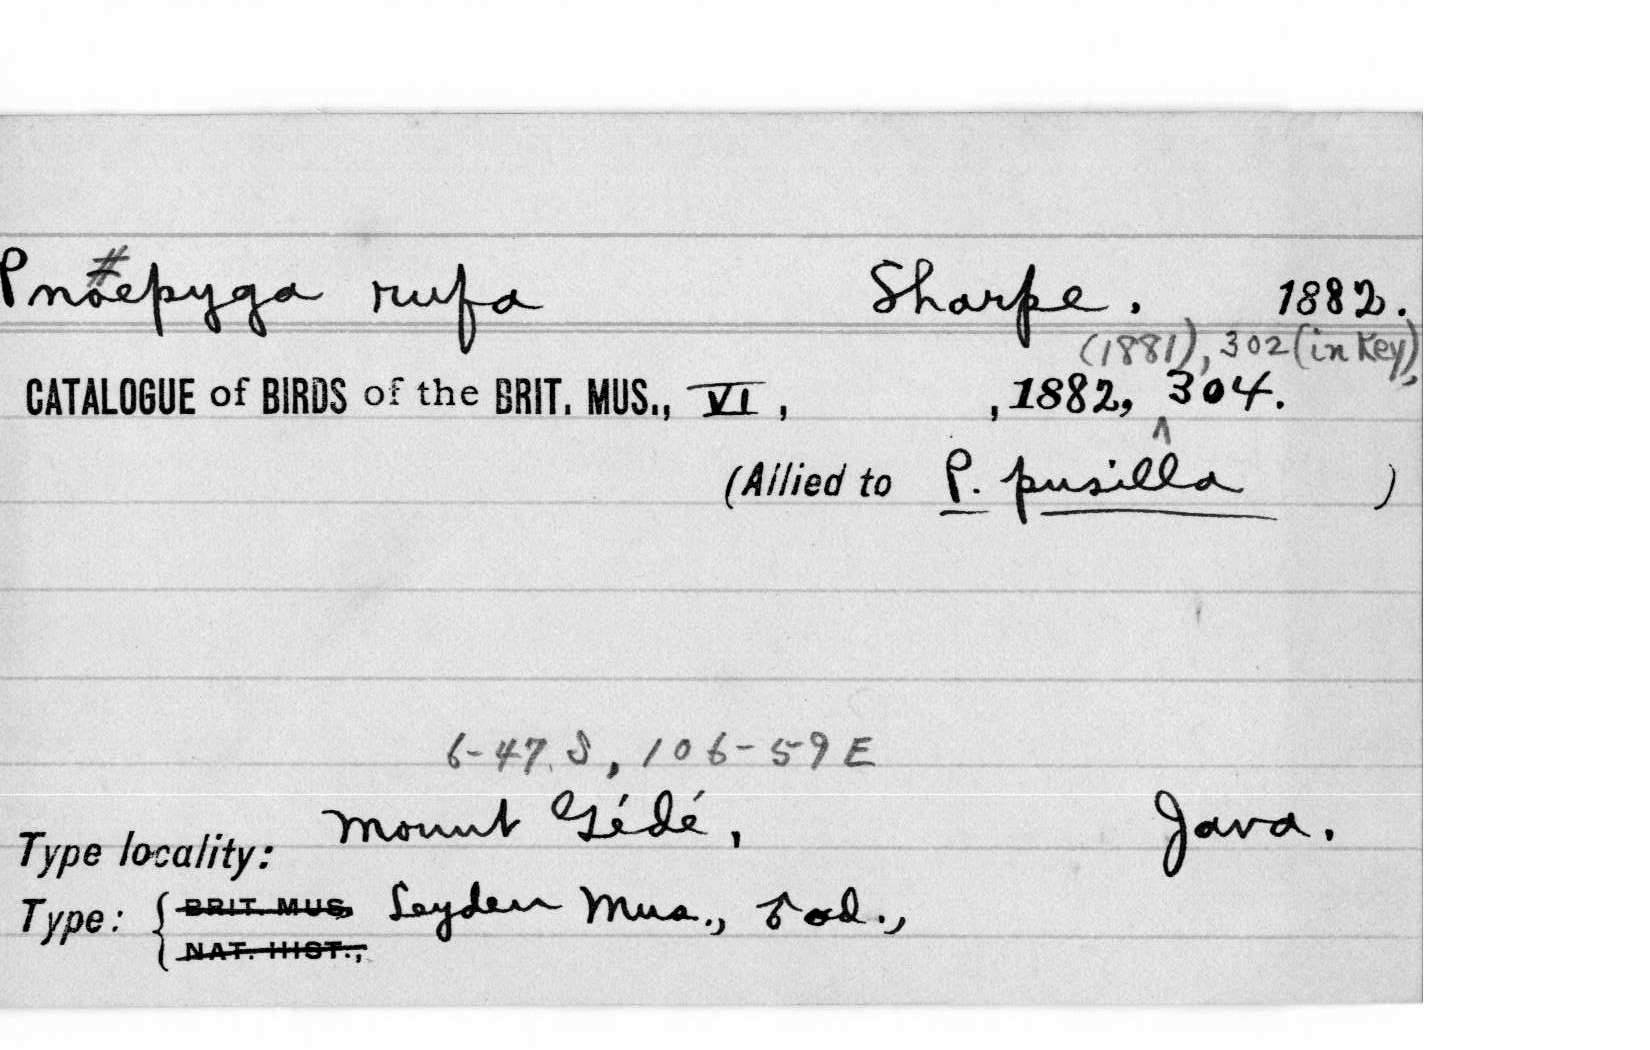 Pnoepyga rufa Sharpe. 1882.
(1881), 302 (in Key),
CATALOGUE of BIRDS of the BRIT. MUS., VI, , 1882, 304.
(Allied to P. pusilla )
6-47 S, 106-59 E
Type locality: Mount Gédé, Java.
Type: { BRIT. MUS. Leyden Mus., fod.,
NAT. HIST.,